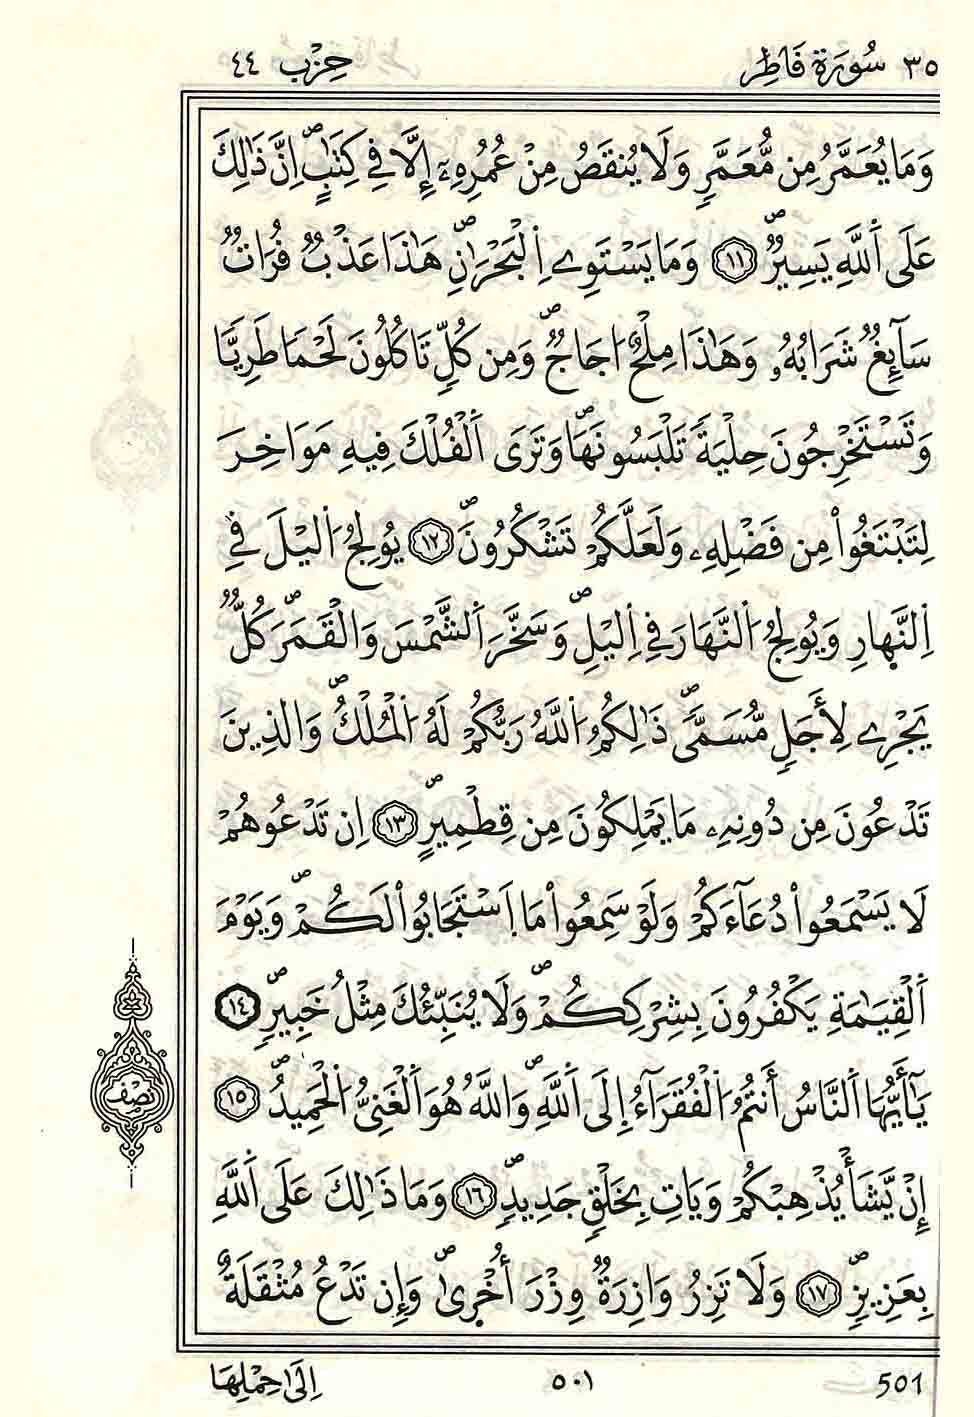 ٣٥ سُورَة فَاطِر حِزْب ٤٤
وَمَا يُعَمَّرُ مِن مُّعَمَّرٍ وَلَا يُنقَصُ مِنْ عُمُرِهِۦٓ إِلَّا فِي كِتَٰبٍۖ اِنَّ ذَٰلِكَ
عَلَى اَ۬للَّهِ يَسِيرٞۖ ١١ وَمَا يَسْتَوِے اِ۬لْبَحْرَٰنِۖ هَٰذَا عَذْبٞ فُرَاتٞ
سَآئِغٞ شَرَابُهُۥ وَهَٰذَا مِلْحٌ ا۟جَاجٞۖ وَمِن كُلّٖ تَاكُلُونَ لَحْماٗ طَرِيّاٗ
وَتَسْتَخْرِجُونَ حِلْيَةٗ تَلْبَسُونَهَاۖ وَتَرَى اَ۬لْفُلْكَ فِيهِ مَوَاخِرَ
لِتَبْتَغُواْ مِن فَضْلِهِۦ وَلَعَلَّكُمْ تَشْكُرُونَۖ ١٢ يُولِجُ اُ۬ليْلَ فِي
اِ۬لنَّهارِ وَيُولِجُ اُ۬لنَّهَارَ فِي اِ۬ليْلِۖ وَسَخَّرَ اَ۬لشَّمْسَ وَالْقَمَرَۖ كُلّٞ
يَجْرِے لِأَجَلٖ مُّسَمّيٗۖ ذَٰلِكُمُ اُ۬للَّهُ رَبُّكُمْ لَهُ اُ۬لْمُلْكُۖ وَالذِينَ
تَدْعُونَ مِن دُونِهِۦ مَا يَمْلِكُونَ مِن قِطْمِيرٍۖ ١٣ اِن تَدْعُوهُمْ
لَا يَسْمَعُواْ دُعَآءَكُمْ وَلَوْ سَمِعُواْ مَا اَ۪سْتَجَابُواْ لَكُمْۖ وَيَوْمَ
اَ۬لْقِيَٰمَةِ يَكْفُرُونَ بِشِرْكِكُمْۖ وَلَا يُنَبِّئُكَ مِثْلُ خَبِيرٖۖ ١٤
يَٰٓأَيُّهَا اَ۬لنَّاسُ أَنتُمُ اُ۬لْفُقَرَآءُ اِ۪لَى اَ۬للَّهِۖ وَاللَّهُ هُوَ اَ۬لْغَنِيُّ اُ۬لْحَمِيدُۖ ١٥
إِنْ يَّشَأْ يُذْهِبْكُمْ وَيَاتِ بِخَلْقٖ جَدِيدٖۖ ١٦ وَمَا ذَٰلِكَ عَلَى اَ۬للَّهِ
بِعَزِيزٖۖ ١٧ وَلَا تَزِرُ وَازِرَةٞ وِزْرَ أُخْر۪ىٰۖ وَإِن تَدْعُ مُثْقَلَةٌ
نِصْف
اِلَىٰ حِمْلِهَا
٥٠١
501